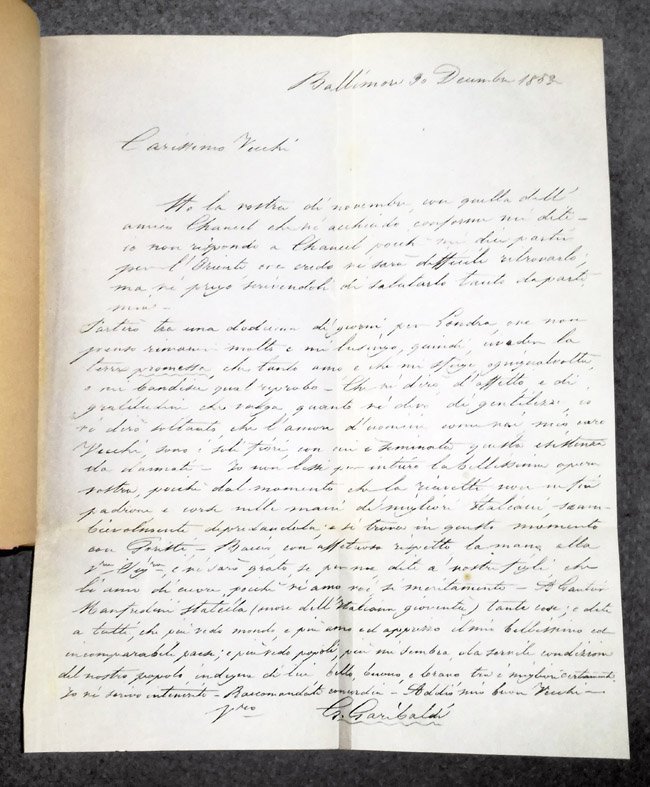 Baltimore 30 Decembre 1852
Carissimo Vecchi
Ho la vostra di novembre, con quella dell'
amico Chancel che vi acchiudo, conforme mi dite -
io non rispondo a Chancel poichè mi dice partir
per l'Oriente ove credo vi sarà difficile ritrovarlo;
ma, vi prego scrivendoli di salutarlo tanto da parte
mia -
Partirò tra una dodicina di giorni per Londra, ove non
penso rimaner molto e mi lusingo, quindi, riveder la
terra promessa, che tanto amo e che mi sfugge ogniqualvolta,
o mi bandisce qual reprobo - Che vi dirò d'affetto e di
gratitudine che valga quanto vi devo di gentilezze, io
vi dirò soltanto che l'amore d'uomini come voi mio caro
Vecchi, sono i soli fiori, con cui è seminata questa esistenza
da dannati - Io non lessi per intiero la bellissima opera
vostra, poichè dal momento che la ricevetti non ne fui
padrone e corse nelle mani de' migliori Italiani
e si trova in questo momento
con Foresti - Baciate con affettuoso rispetto la mano alla
Vra Sigra, e vi sarò grato se per me dite a' vostri figli, che
li amo di cuore, poichè vi amo voi, sì meritamente - A
Manfredini Statella, (onore dell'Italiana gioventù) tante cose; e dite
a tutti, che più vedo mondo e più amo ed apprezzo il mio bellissimo ed
incomparabile paese; e più vedo popoli, più mi sembra la servile condizione
del nostro popolo, indegna di lui bello, buono e bravo tra i migliori certamente
Io vi scrivo - Raccomandate concordia - Addio mio buon Vecchi -
Vro G. Garibaldi